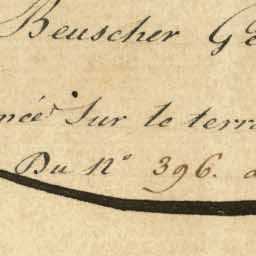 Beuscher Ge
ncé sur le terra
Du N° 396. d